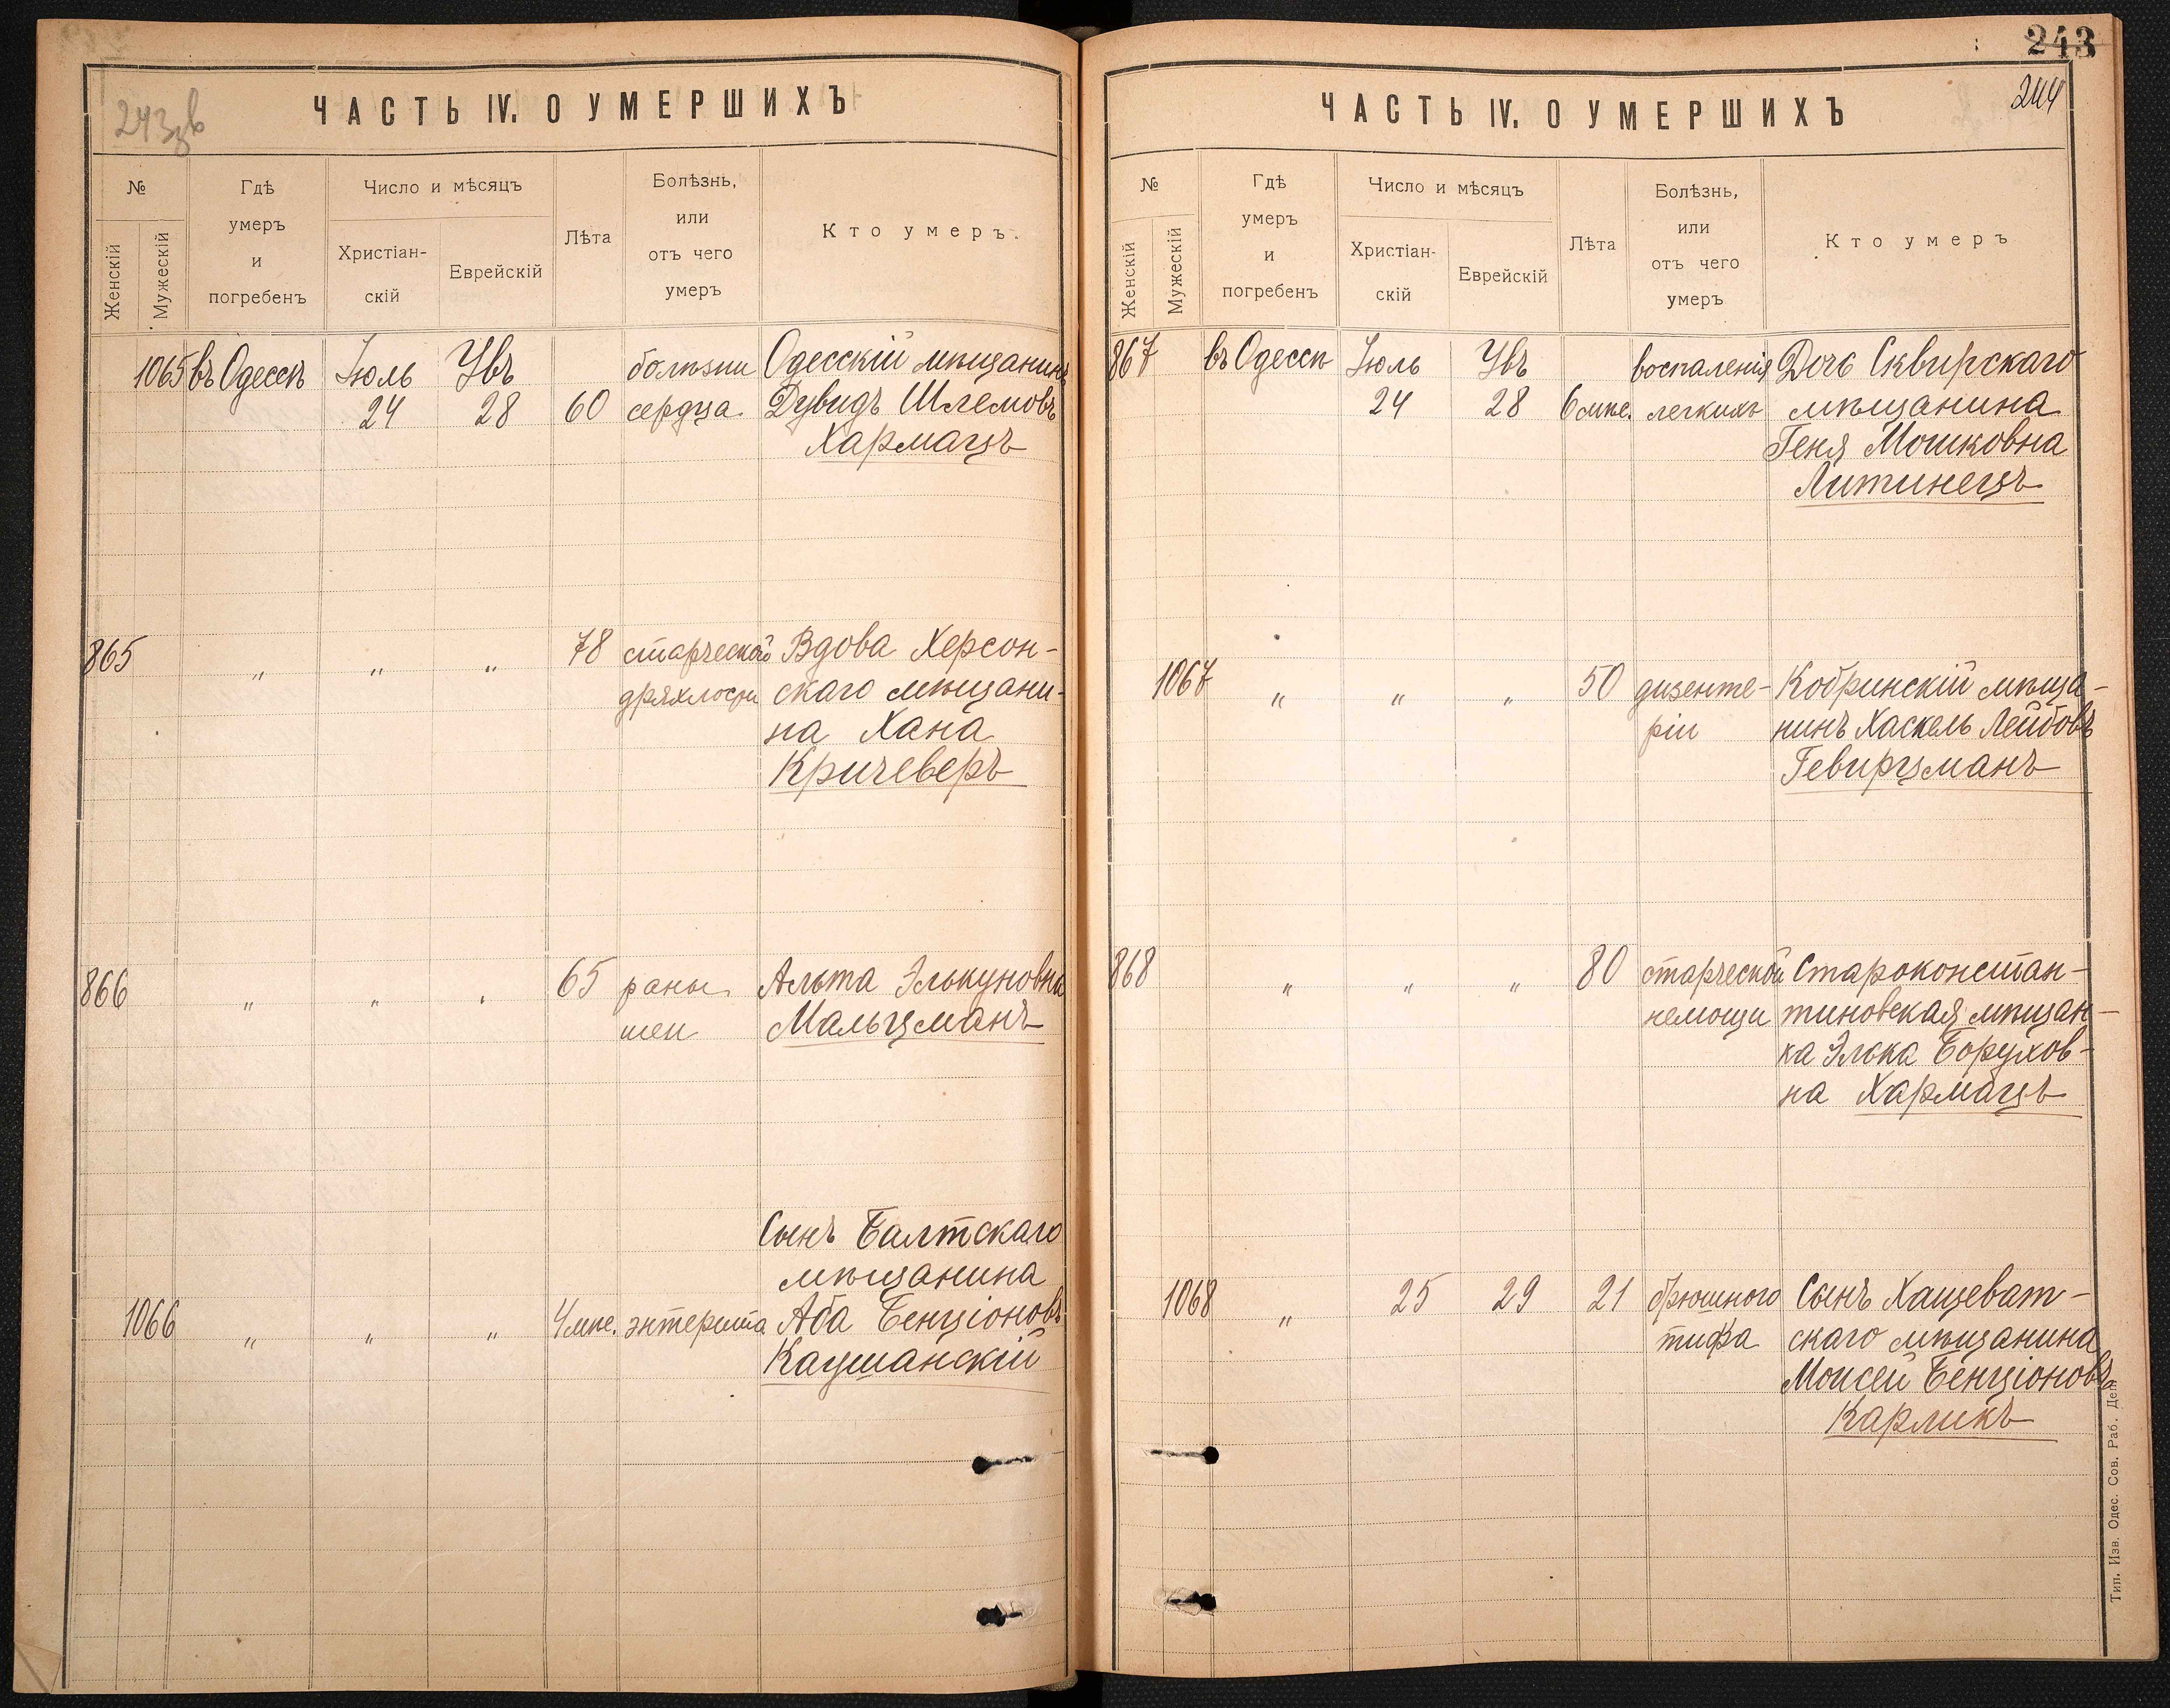 243
244
243 зв
ЧАСТЬ IV. О УМЕРШИХЪ
№
Женскій
Мужескій
Гдѣ
умеръ
и
погребенъ
Число и мѣсяцъ
Христіан-
скій
Еврейскій
Лѣта
Болѣзнь,
или
отъ чего
умеръ
Кто умеръ.
1065 въ Одессѣ Іюль Увъ болѣзни Одесскій мѣщанинъ
24 28 60 сердца Дувидъ Шлемовъ
Хармацъ
865 „ „ „ 78 старческой Вдова Херсон-
дряхлости скаго мѣщани-
на Хана
Кричеверъ
866 „ „ „ 65 раны Альта Элькуновна
шеи Мальцманъ
Сынъ Балтскаго
мѣщанина
1066 „ „ „ 4 мце. энтерита Аба Бенціоновъ
Каушанскій
ЧАСТЬ IV. О УМЕРШИХЪ
№
Женскій
Мужескій
Гдѣ
умеръ
и
погребенъ
Число и мѣсяцъ
Христіан-
скій
Еврейскій
Лѣта
Болѣзнь,
или
отъ чего
умеръ
Кто умеръ
867 въ Одессѣ Іюль Увъ воспаленія Дочь Сквирскаго
24 28 6 мце. легкихъ мѣщанина
Геня Мошковна
Литинецъ
1067 „ „ „ 50 дизенте- Кобринскій мѣща-
ріи нинъ Хаскель Лейбовъ
Гевирцманъ
868 „ „ „ 80 старческой Староконстан-
немощи тиновская мѣщан-
ка Элька Борухов-
на Хармацъ
1068 „ 25 29 21 брюшного Сынъ Хащеват-
тифа скаго мѣщанина
Моисей Бенціоновъ
Карликъ
Тип. Изв. Одес. Сов. Раб. Деп.